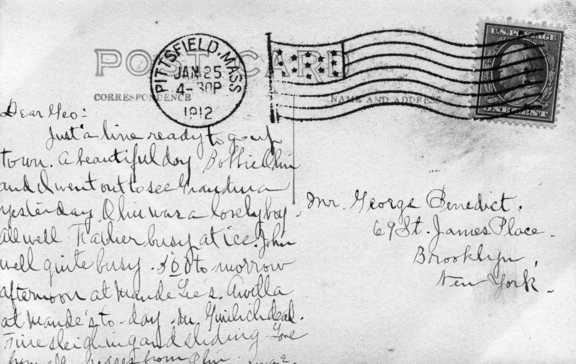 POST CARD
PITTSFIELD, MASS
JAN 25
4-30P
1912
U.S. POSTAGE
ONE CENT
CORRESPONDENCE
NAME AND ADDRESS
Dear Geo:
Just a line ready to go up
town. A beautiful day Bobbie Olin
and I went out to see Grandma
yesterday. Olin was a lovely boy.
all well Father busy at ice. John
well quite busy. to morrow
afternoon at Maude Lee's. Arvilla
at Maude's to-day. Mr. dead.
Fine sleighing and sliding Love
from all kisses from Olin
Mr. George Benedict.
69 St. James Place.
Brooklyn,
New York.